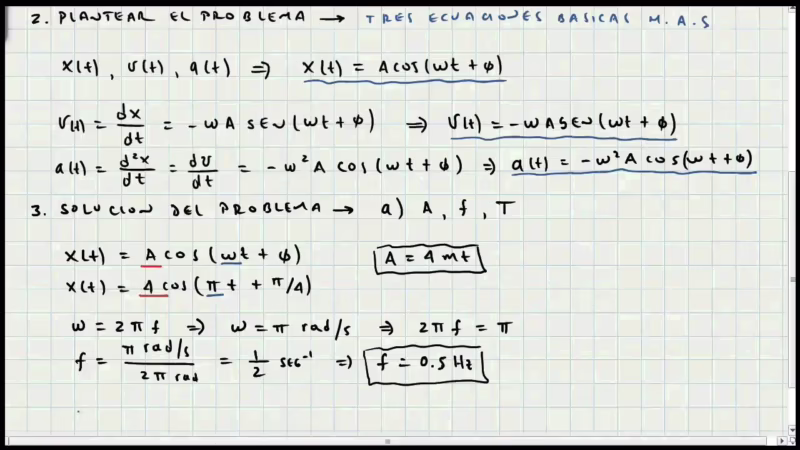 2. PLANTEAR EL PROBLEMA → TRES ECUACIONES BASICAS M.A.S
x(t), v(t), a(t) ⇒ x(t) = A cos(ωt + φ)
v(t) = dx/dt = -ωA SEN(ωt + φ) ⇒ v(t) = -ωA SEN(ωt + φ)
a(t) = d²x/dt = dv/dt = -ω²A cos(ωt + φ) ⇒ a(t) = -ω²A cos(ωt + φ)
3. SOLUCION DEL PROBLEMA → a) A, f, T
x(t) = A cos(ωt + φ) A = 4 mt
x(t) = 4 cos(πt + π/4)
ω = 2πf ⇒ ω = π rad/s ⇒ 2πf = π
f = π rad/s / 2π rad = 1/2 seg⁻¹ ⇒ f = 0.5 Hz